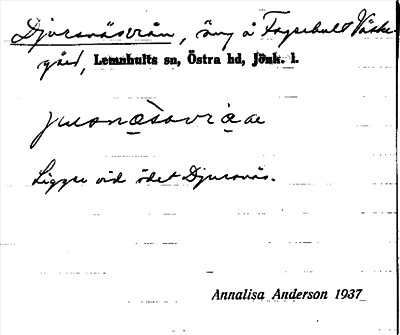 Djursnäsvrån, äng å Fagrehult Västre
gård, Lemnhults sn, Östra hd, Jönk. l.
Ligger vid ödet Djursnäs.
Annalisa Anderson 1937